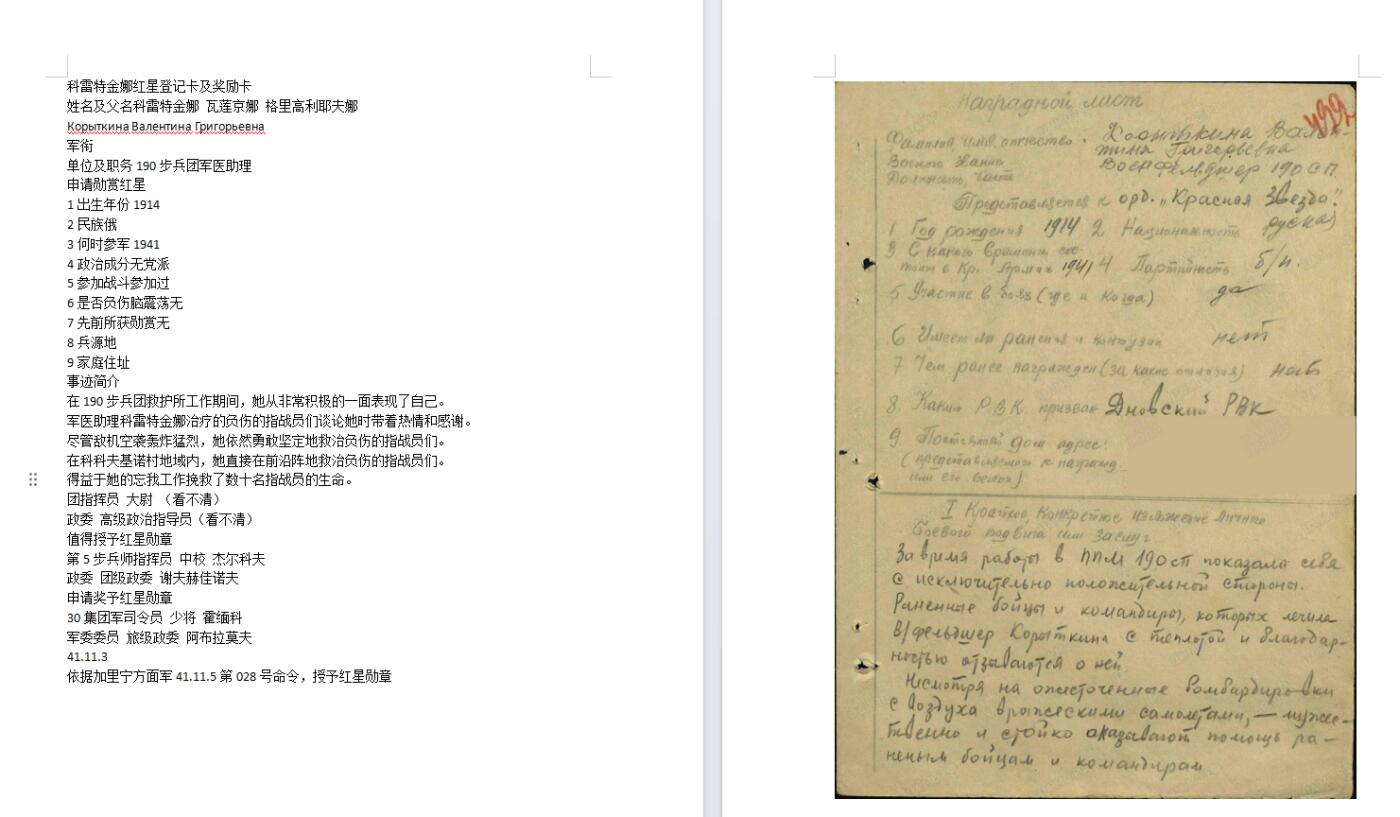 科雷特金娜红星登记卡及奖励卡
姓名及父名科雷特金娜 瓦莲京娜 格里高利耶夫娜
Корыткина Валентина Григорьевна
军衔
单位及职务 190 步兵团军医助理
申请勋赏红星
1 出生年份 1914
2 民族俄
3 何时参军 1941
4 政治成分无党派
5 参加战斗参加过
6 是否负伤脑震荡无
7 先前所获勋赏无
8 兵源地
9 家庭住址
事迹简介
在 190 步兵团救护所工作期间，她从非常积极的一面表现了自己。
军医助理科雷特金娜治疗的负伤的指战员们谈论她时带着热情和感谢。
尽管敌机空袭轰炸猛烈，她依然勇敢坚定地救治负伤的指战员们。
在科科夫基诺村地域内，她直接在前沿阵地救治负伤的指战员们。
得益于她的忘我工作挽救了数十名指战员的生命。
团指挥员 大尉 （看不清）
政委 高级政治指导员（看不清）
值得授予红星勋章
第 5 步兵师指挥员 中校 杰尔科夫
政委 团级政委 谢夫赫佳诺夫
申请奖予红星勋章
30 集团军司令员 少将 霍缅科
军委委员 旅级政委 阿布拉莫夫
41.11.3
依据加里宁方面军 41.11.5 第 028 号命令，授予红星勋章
Наградной лист
Фамилия, имя, отчество. Корыткина Вален-
тина Григорьевна
Военное звание
Военфельдшер 190 СП.
Должность, часть
Представляется к орд. „Красная Звезда".
1 Год рождения 1914 2 Национальность русская
3 С какого времени сос-
тоит в Кр. Армии 1941 4 Партийность б/п.
5 Участие в боях (где и когда) да
6 Имеет ли ранения и контузии нет
7 Чем ранее награжден (за какие отличия)
8. Каким РВК призван Дновский РВК
9 Постоянный дом. адрес:
(представляемого к награжд.
или его семьи)
I Краткое, конкретное изложение личного
боевого подвига или заслуг
За время работы в ППМ 190 сп показала себя
с исключительно положительной стороны.
Раненные бойцы и командиры, которых лечила
в/фельдшер Корыткина с теплотой и благодар-
ностью отзываются о ней.
Несмотря на ожесточенные бомбардировки
с воздуха вражескими самолетами, — муже-
ственно и стойко оказывают помощь ра-
неным бойцам и командирам